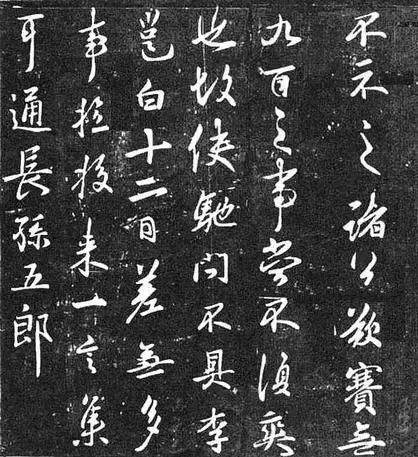 不示之諸公欲賽無
九百之事當不須爽
也故使馳問不具李
邕白十二日差無多
事来一言集
耳通長孫五郎